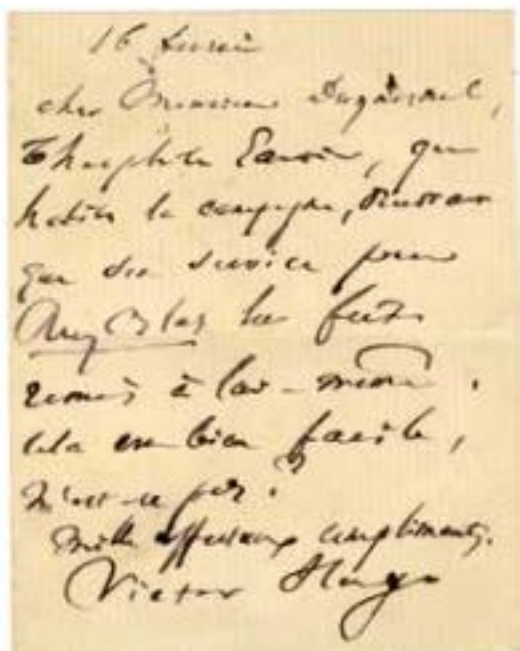 16 février
cher Monsieur Duquesnel,
Théophile Gautier, qui
habite la campagne,
que son service pour
Ruy Blas lui fût
remis à lui-même.
Cela est bien facile,
n'est-ce pas ?
Mille affectueux compliments.
Victor Hugo